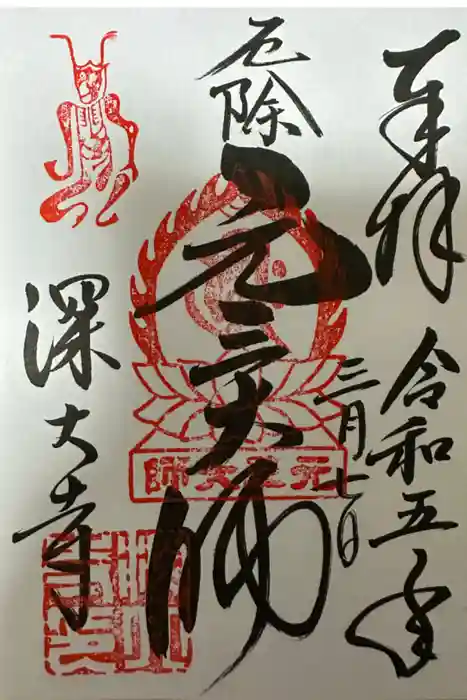 奉拝
令和五年
三月七日
厄除
元三大師
深大寺
元三大師